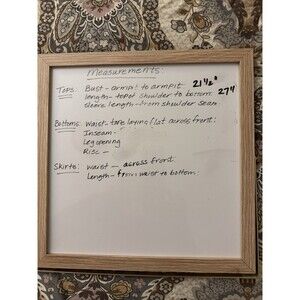 Measurements:
Tops: Bust - armpit to armpit 21 1/2"
length - top of shoulder to bottom: 27"
Sleeve length - from shoulder seam
Bottoms: Waist - tape laying flat across front:
Inseam -
Leg opening
Rise -
Skirts: Waist - across front
Length - from waist to bottom: